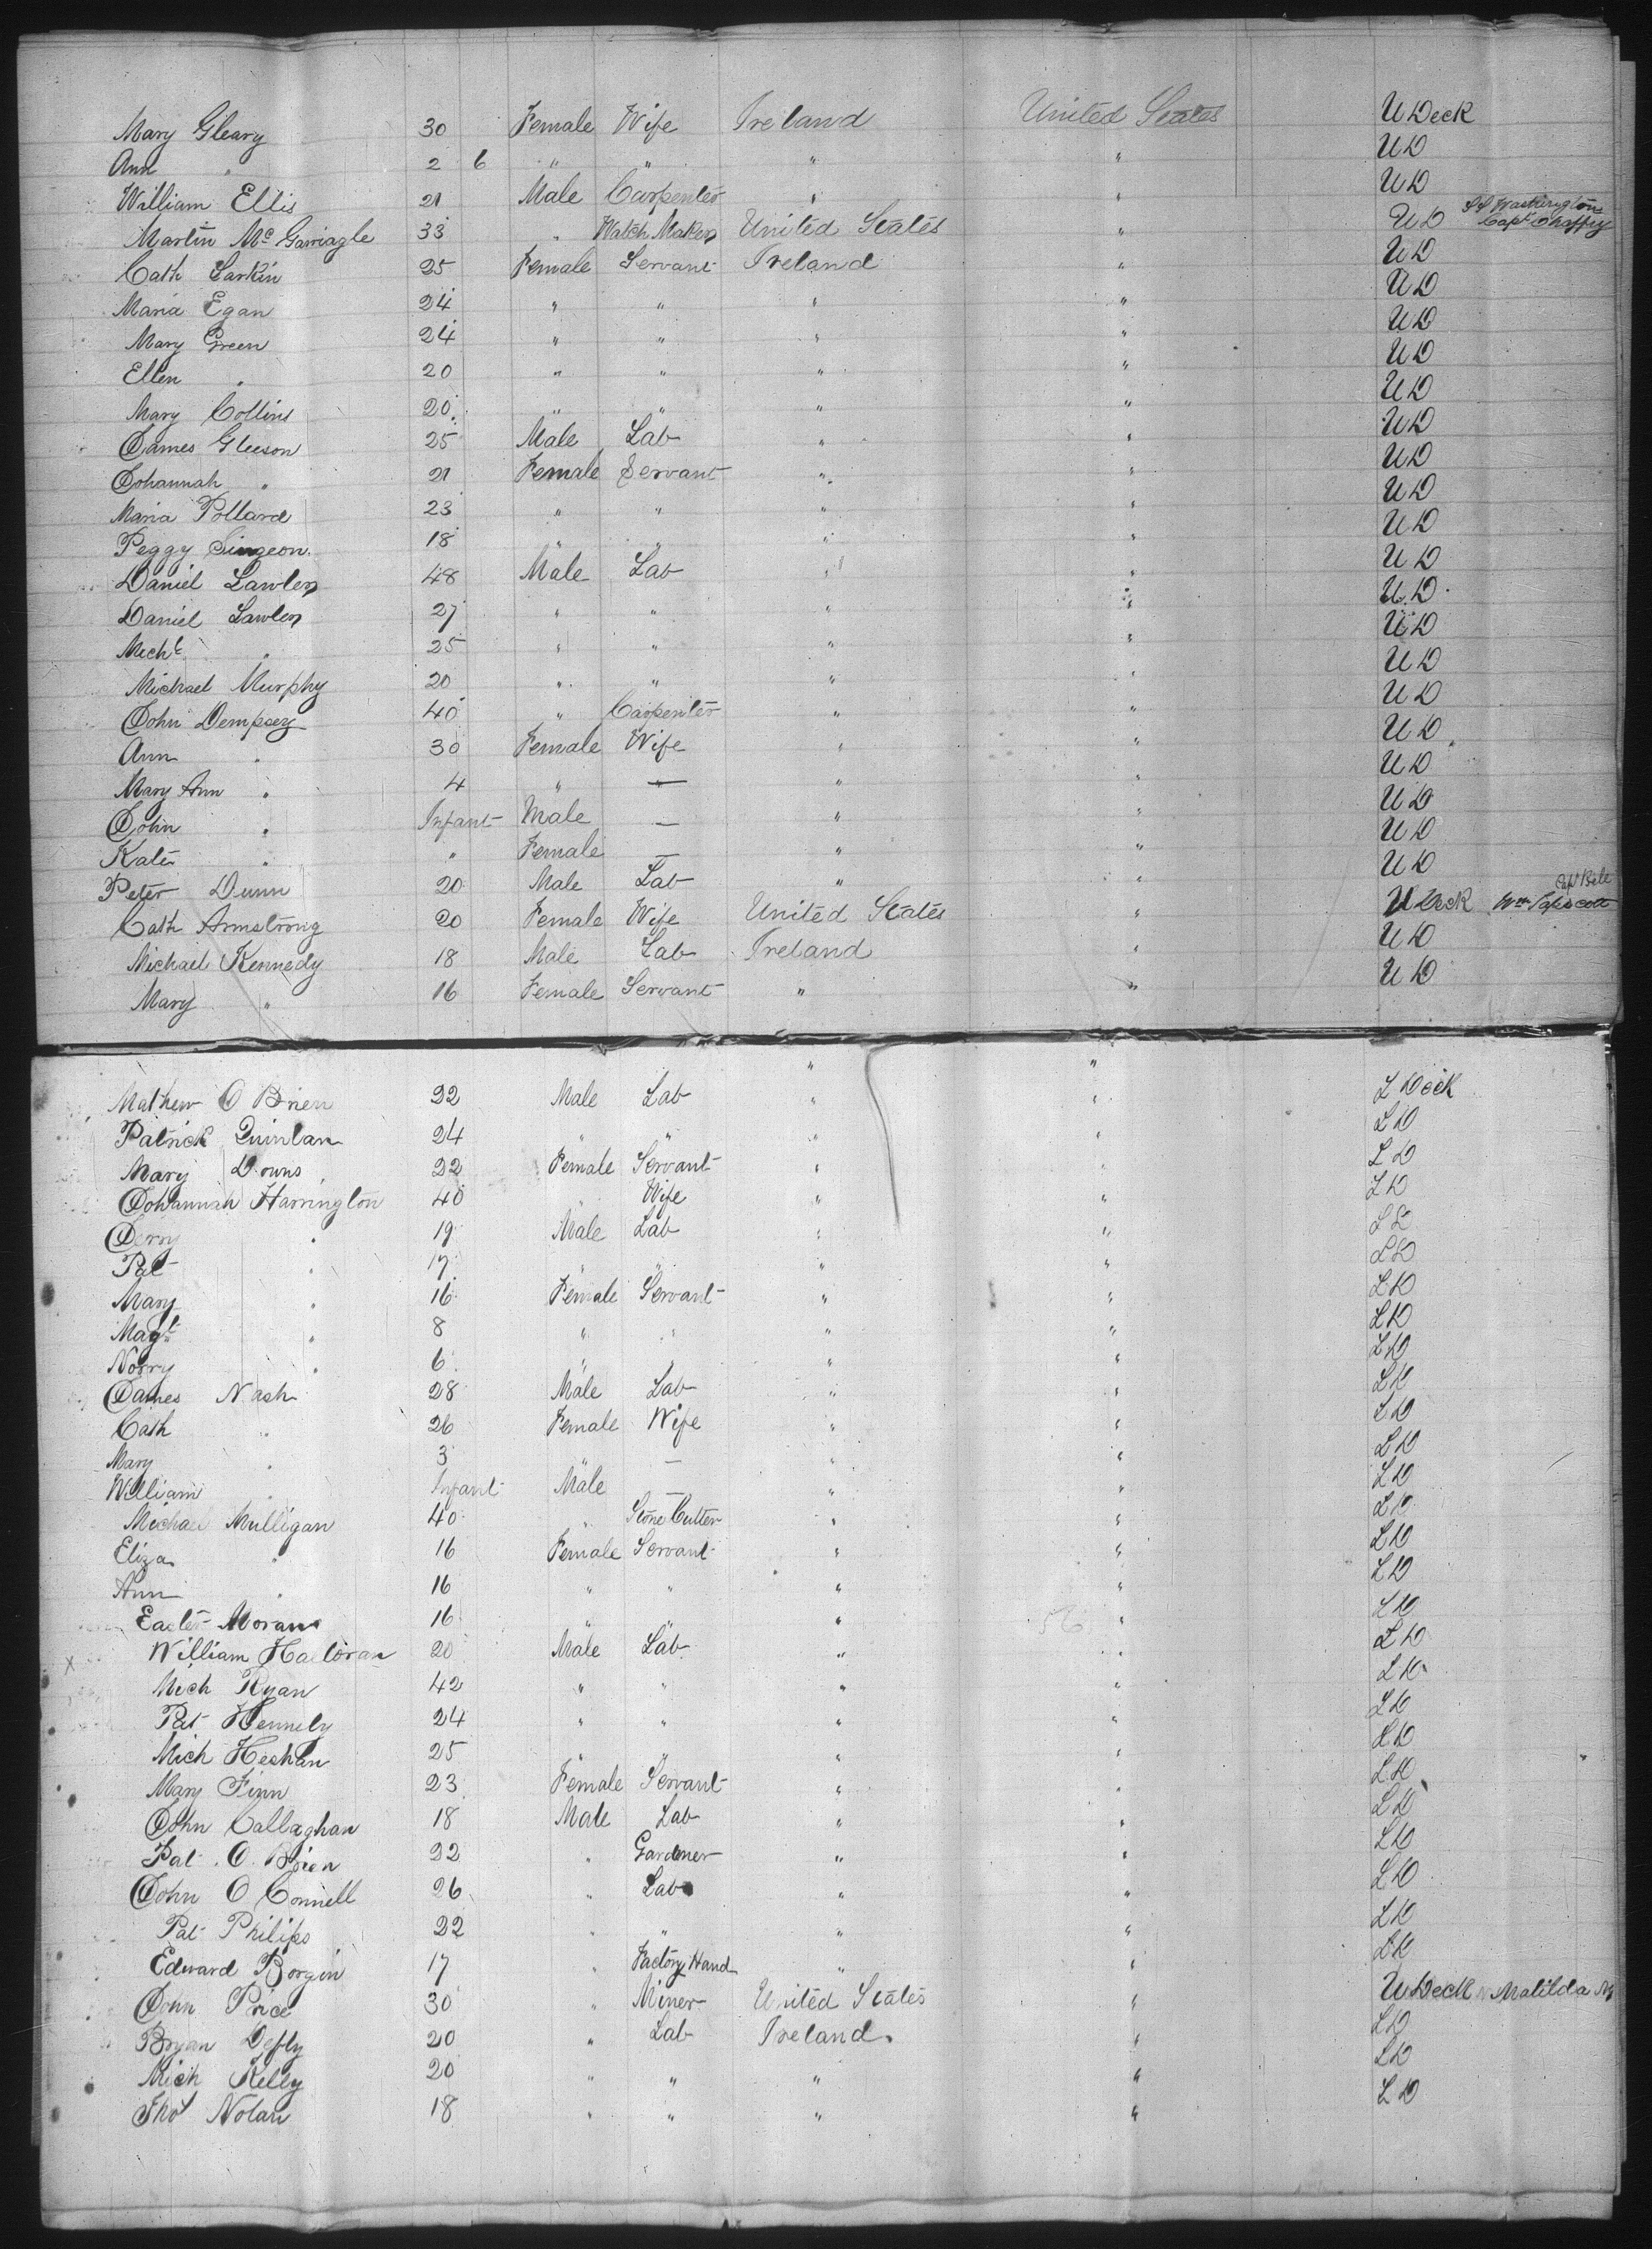 Mary Gleary 30 Female Wife Ireland United States U Deck
Ann " 2 6 " " " " U D
William Ellis 21 Male Carpenter " " U D
Martin Mc Garriagle 33 " Watch Maker United States " U D S S Washington Capt Chaffey
Cath Larkin 25 Female Servant Ireland " U D
Maria Egan 24 " " " " U D
Mary Green 24 " " " " U D
Ellen " 20 " " " " U D
Mary Collins 20 " " " " U D
James Gleeson 25 Male Lab " " U D
Johannah " 21 Female Servant " " U D
Maria Pollard 23 " " " " U D
Peggy 18 " " " " U D
Daniel Lawler 48 Male Lab " " U D
Daniel Lawler 27 " " " " U D
Mechl " 25 " " " " U D
Michael Murphy 20 " " " " U D
John Dempsey 40 " Carpenter " " U D
Ann " 30 Female Wife " " U D
Mary Ann " 4 " — " " U D
John " Infant Male — " " U D
Kate " " Female — " " U D
Peter Dunn 20 Male Lab " " U D
Cath Armstrong 20 Female Wife United States " U Deck Wm Tapscott Capt Bele
Michael Kennedy 18 Male Lab Ireland " U D
Mary " 16 Female Servant " " U D
Mathew O Brien 22 Male Lab " " L Deck
Patrick Quinlan 24 " " " " L D
Mary Downs 22 Female Servant " " L D
Johannah Harrington 40 " Wife " " L D
Jerry " 19 Male Lab " " L D
Pat " 17 " " " " L D
Mary " 16 Female Servant " " L D
Magt " 8 " " " " L D
Norry " 6 " " " " L D
James Nash 28 Male Lab " " L D
Cath " 26 Female Wife " " L D
Mary " 3 " — " " L D
William " Infant Male — " " L D
Michael Mulligan 40 " Stone Cutter " " L D
Eliza " 16 Female Servant " " L D
Ann " 16 " " " " L D
Easter Moran 16 " " " " L D
William Halloran 20 Male Lab " " L D
Mich Ryan 42 " " " " L D
Pat Hennely 24 " " " " L D
Mich Heshan 25 " " " " L D
Mary Finn 23 Female Servant " " L D
John Callaghan 18 Male Lab " " L D
Pat . O . Brien 22 " Gardener " " L D
John O Connell 26 " Lab " " L D
Pat Philips 22 " " " " L D
Edward Borgin 17 " Factory Hand " " L D
John Price 30 " Miner United States " U Deck Matilda
Bryan 20 " Lab Ireland " L D
Mich Kelly 20 " " " " L D
Thos Nolan 18 " " " " L D